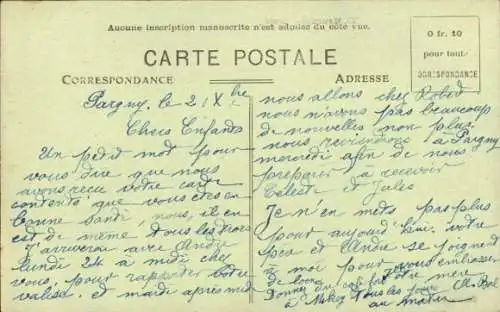 Aucune inscription manuscrite n'est admise du côté vue.
CARTE POSTALE
0 fr. 10
pour toute
CORRESPONDANCE
CORRESPONDANCE
ADRESSE
Pargny, le 21 Xbre
Chers Enfants
Un petit mot pour
vous dire que nous
avons reçu votre carte
contents que vous êtes en
bonne santé, nous, il en
est de même tous les trois
J'arriverai avec André
lundi 24 à midi chez
vous, pour rapporter votre
valise et mardi après midi
nous allons chez Robert
nous n'avons pas beaucoup
de nouvelles non plus.
nous reviendrons à Pargny
mercredi afin de nous
préparer à recevoir
Céleste et Jules
Je n'en mets pas plus
pour aujourd'hui, votre
père et André se joignent
à moi pour vous embrasser
de loin votre mère
Donnez du
à tous les jours
au matin